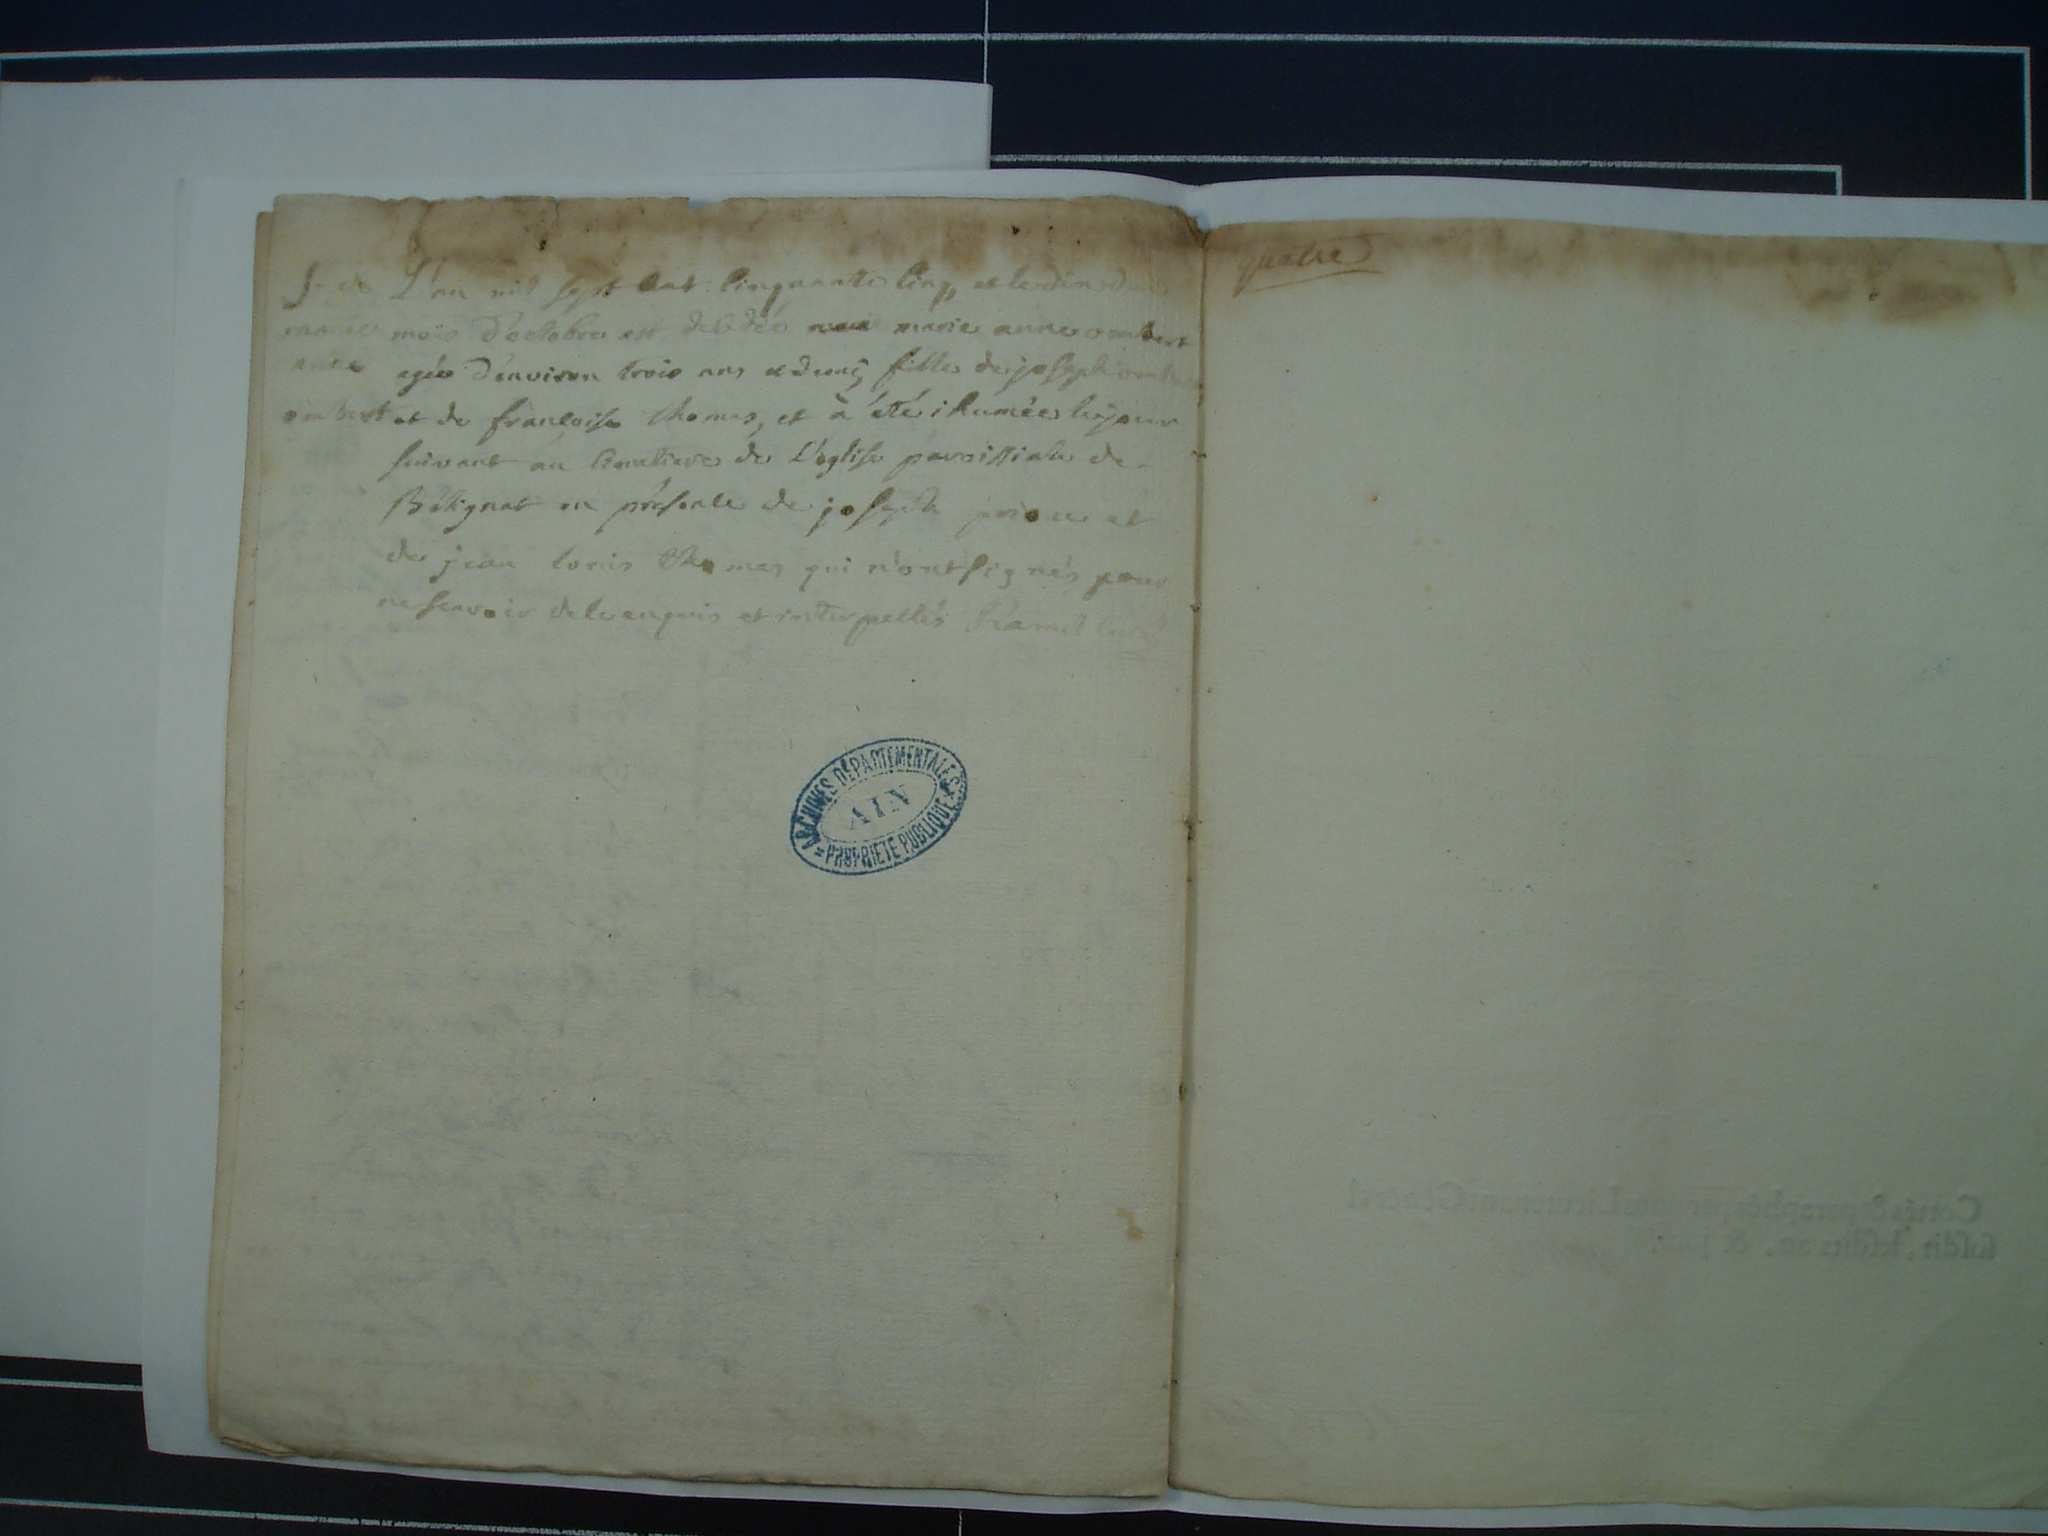 L'an mil sept cent cinquante cinq, et le dix du
marie mois d'octobre est decedée marie anne ombert
anne agée d'environ trois ans et demÿ fille de joseph ombert
ombert et de françoise thomas, et à été ihumée le jour
suivant au cimetiere de L'eglise paroissiale de
Bélignat en présence de joseph et
de jean louis thomas qui n'ont signés pour
ne scavoir de ce enquis et interpellés curé
quatre
ARCHIVES DÉPARTEMENTALES
AIN
PROPRIÉTÉ PUBLIQUE
Cottés & paraphés par nous Lieutenant Général
susdit, lesdits an, & jour